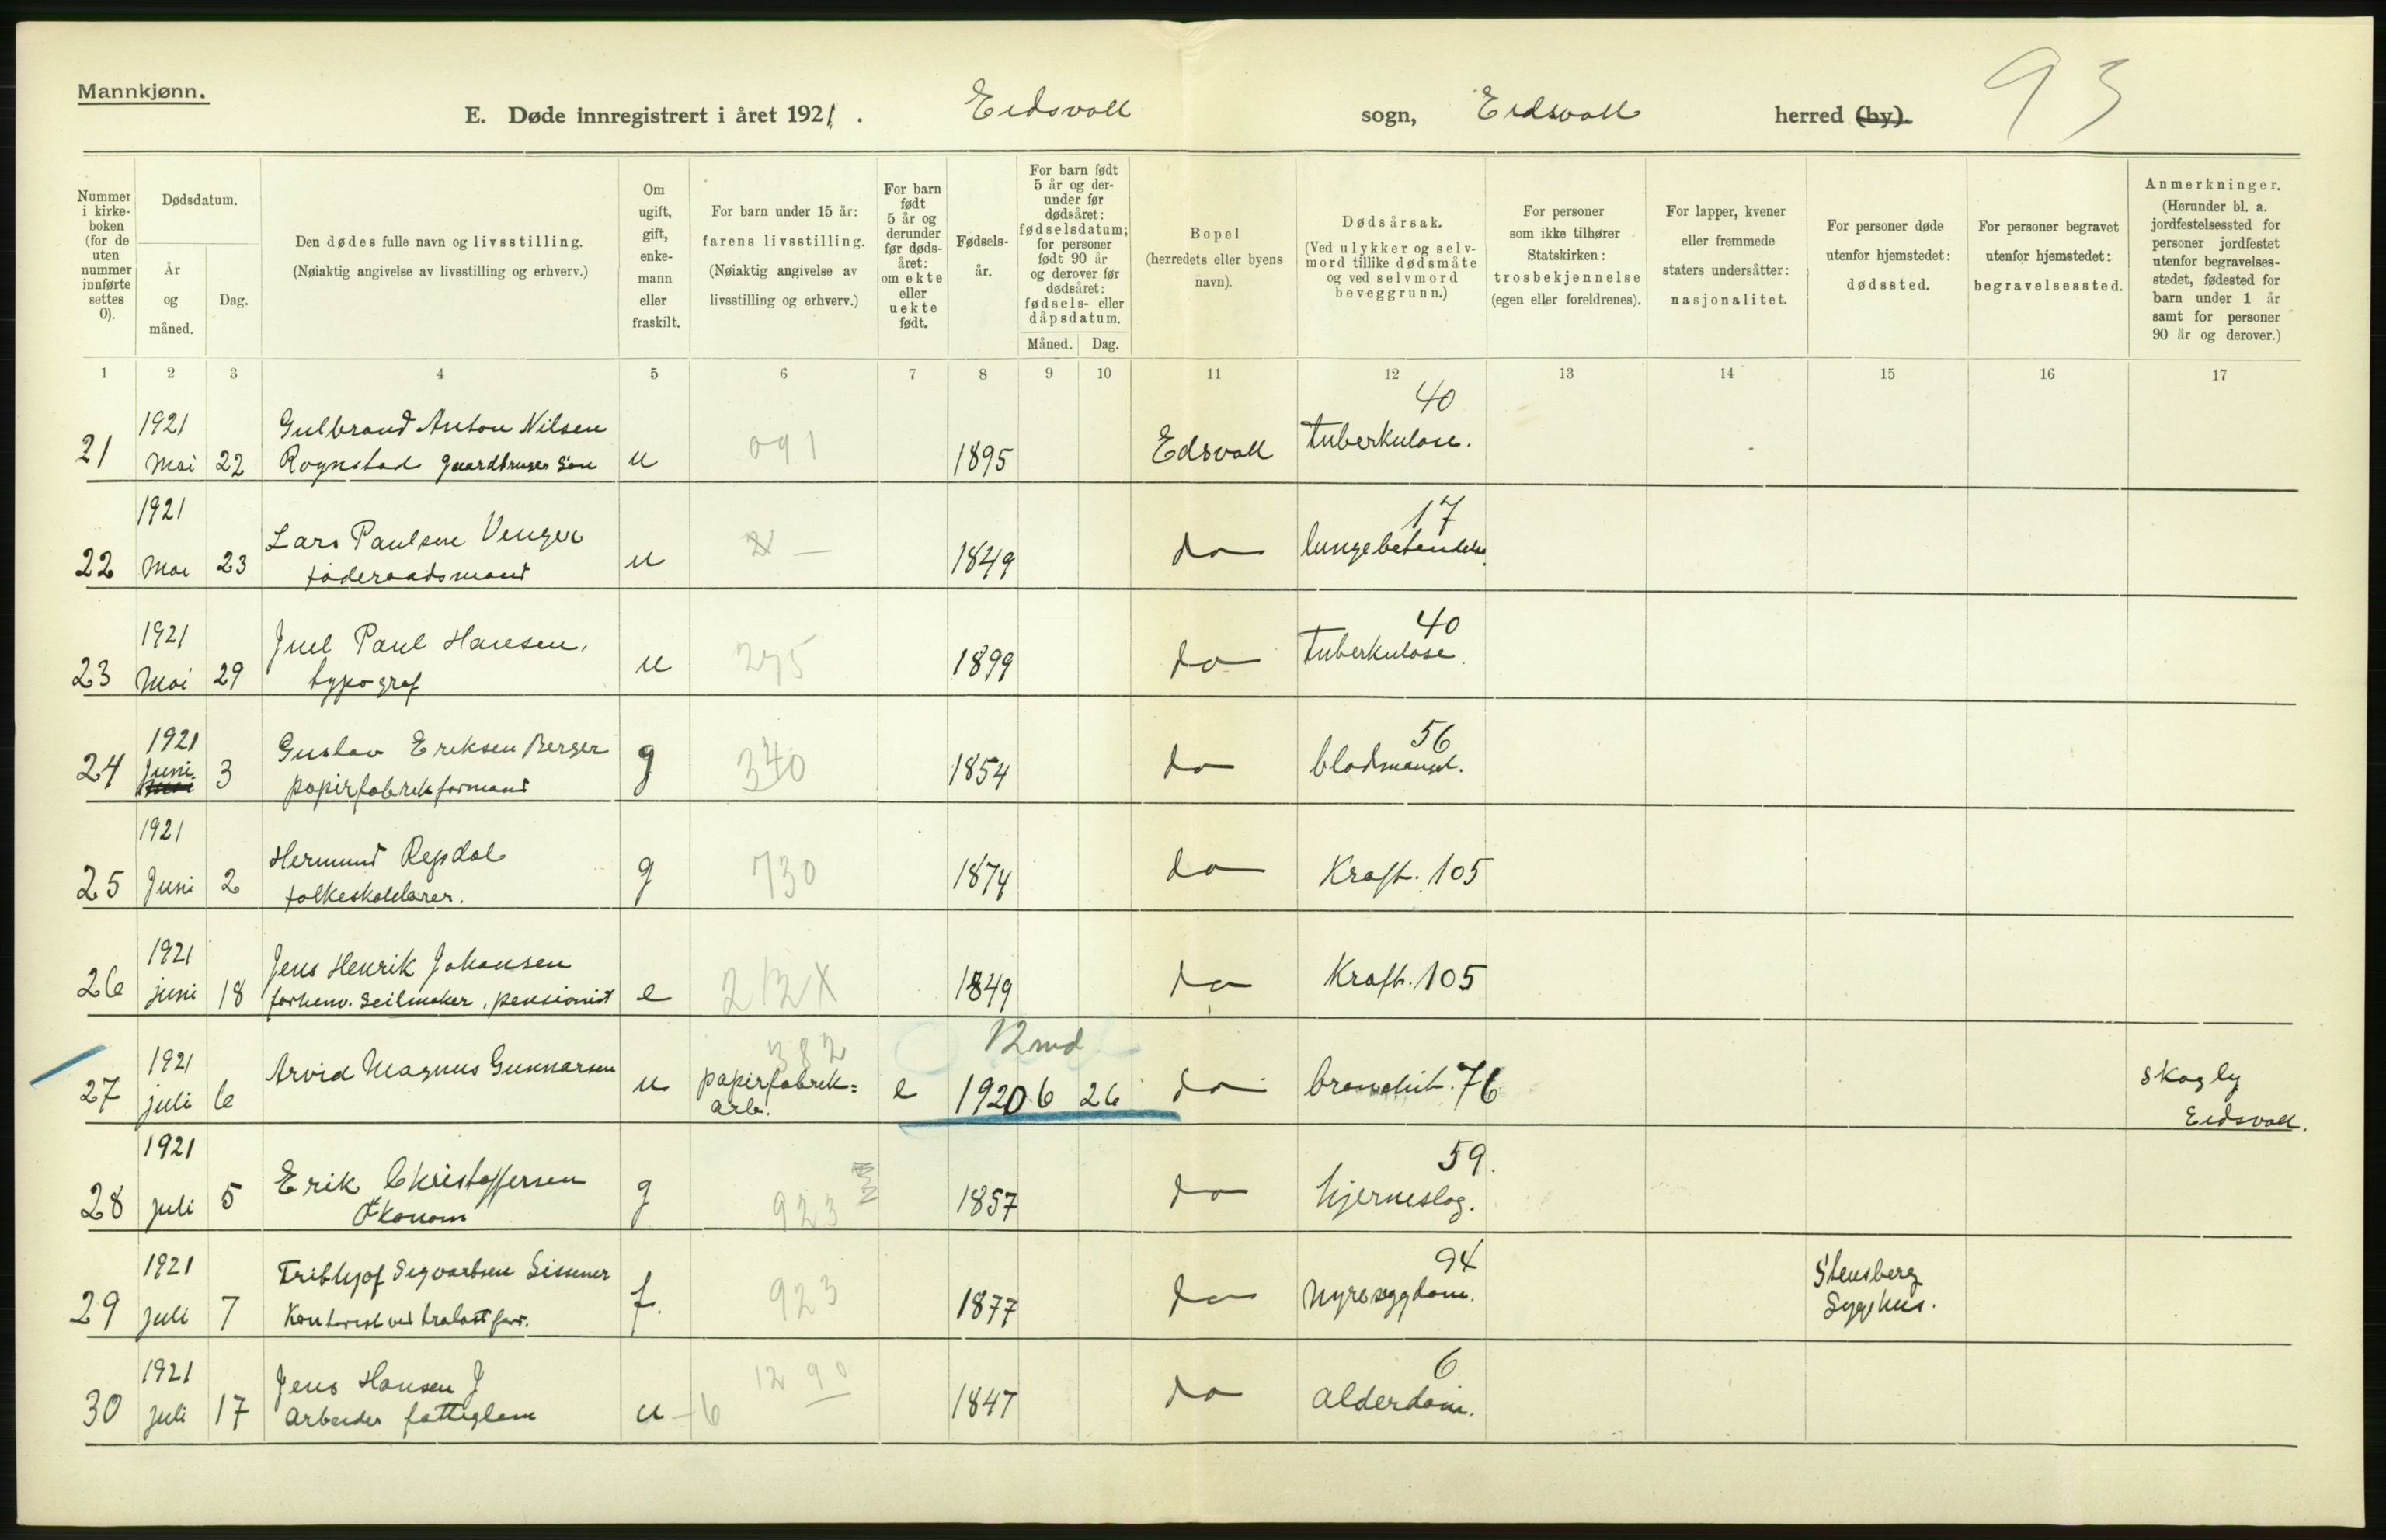 Mannkjønn.
93
E. Døde innregistrert i året 1921. Eidsvoll sogn, Eidsvoll herred (by).
Nummer i kirkeboken (for de uten nummer innførte settes 0).
Dødsdatum.
År og måned.
Dag.
Den dødes fulle navn og livsstilling.
(Nøiaktig angivelse av livsstilling og erhverv.)
Om ugift, gift, enkemann eller fraskilt.
For barn under 15 år: farens livsstilling.
(Nøiaktig angivelse av livsstilling og erhverv.)
For barn født 5 år og derunder før dødsåret: om ekte eller uekte født.
Fødselsår.
For barn født 5 år og derunder før dødsåret: fødselsdatum; for personer født 90 år og derover før dødsåret: fødsels- eller dåpsdatum.
Måned. Dag.
Bopel
(herredets eller byens navn).
Dødsårsak.
(Ved ulykker og selvmord tillike dødsmåte og ved selvmord beveggrunn.)
For personer som ikke tilhører Statskirken: trosbekjennelse (egen eller foreldrenes).
For lapper, kvener eller fremmede staters undersåtter: nasjonalitet.
For personer døde utenfor hjemstedet: dødssted.
For personer begravet utenfor hjemstedet: begravelsessted.
Anmerkninger.
(Herunder bl. a. jordfestelsessted for personer jordfestet utenfor begravelsesstedet, fødested for barn under 1 år samt for personer 90 år og derover.)
1 2 3 4 5 6 7 8 9 10 11 12 13 14 15 16 17
1921 Gulbrand Anton Nilsen 091 40
21 Mai 22 Rognstad gaardbruger Søn u 1895 Edsvoll Tuberkulose.
1921 Lars Paulsen Venger 17
22 Mai 23 føderaadsmand u 1849 do lungebetendelse.
1921 Juel Paul Hansen, 40
23 Mai 29 typograf u 275 1899 do Tuberkulose.
1921 Gustav Eriksen Berger 56
24 Juni 3 papirfabrikformand g 340 1854 do blodmangel.
1921 Hermund Repdal
25 Juni 2 folkeskolelærer. g 730 1874 do Kræft. 105
1921 Jens Henrik Johansen
26 juni 18 forhenv. Seilmaker, pensionist e 212X 1849 do Kræft. 105
1921 Arvid Magnus Gunnarsen 382 12 md
27 juli 6 u papirfabrik=arb. e 1920 6 26 do bronchit. 76 Skogly
Eidsvoll.
1921 Erik Christoffersen 59.
28 juli 5 Økonom g 923 1857 do hjerneslag.
1921 Frithjof Sigvartsen Lissener 94 Stensberg
29 juli 7 Kontorist ved trælastforr. f. 923 1877 do Nyresygdom. Sygehus.
1921 Jens Hansen J 1290 6
30 juli 17 Arbeider fattiglem u - 6 1847 do Alderdom.